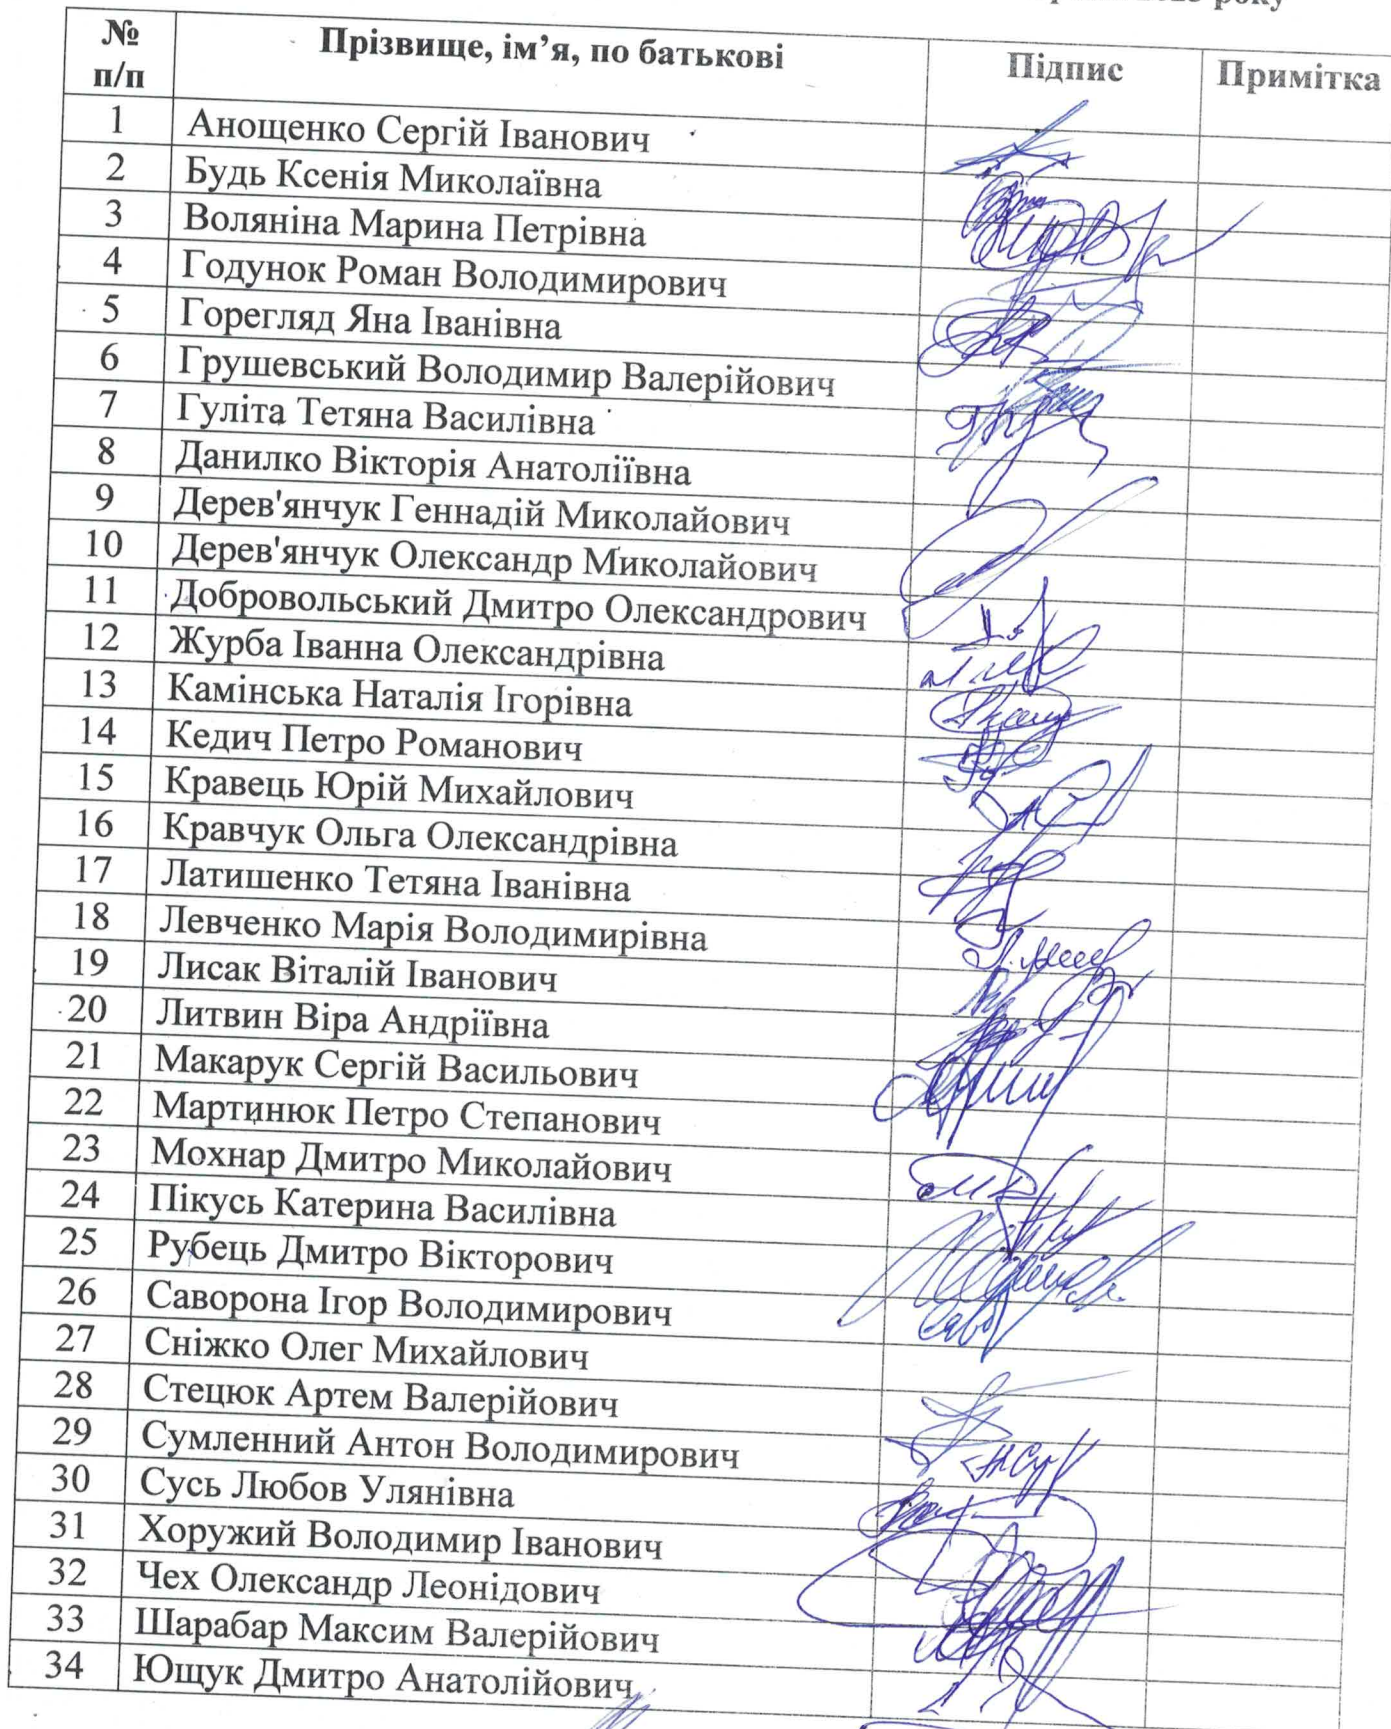 2023 року
№ п/п Прізвище, ім’я, по батькові Підпис Примітка
1 Анощенко Сергій Іванович
2 Будь Ксенія Миколаївна
3 Воляніна Марина Петрівна
4 Годунок Роман Володимирович
5 Горегляд Яна Іванівна
6 Грушевський Володимир Валерійович
7 Гуліта Тетяна Василівна
8 Данилко Вікторія Анатоліївна
9 Дерев'янчук Геннадій Миколайович
10 Дерев'янчук Олександр Миколайович
11 Добровольський Дмитро Олександрович
12 Журба Іванна Олександрівна
13 Камінська Наталія Ігорівна
14 Кедич Петро Романович
15 Кравець Юрій Михайлович
16 Кравчук Ольга Олександрівна
17 Латишенко Тетяна Іванівна
18 Левченко Марія Володимирівна
19 Лисак Віталій Іванович
20 Литвин Віра Андріївна
21 Макарук Сергій Васильович
22 Мартинюк Петро Степанович
23 Мохнар Дмитро Миколайович
24 Пікусь Катерина Василівна
25 Рубець Дмитро Вікторович
26 Саворона Ігор Володимирович
27 Сніжко Олег Михайлович
28 Стецюк Артем Валерійович
29 Сумленний Антон Володимирович
30 Сусь Любов Улянівна
31 Хоружий Володимир Іванович
32 Чех Олександр Леонідович
33 Шарабар Максим Валерійович
34 Ющук Дмитро Анатолійович